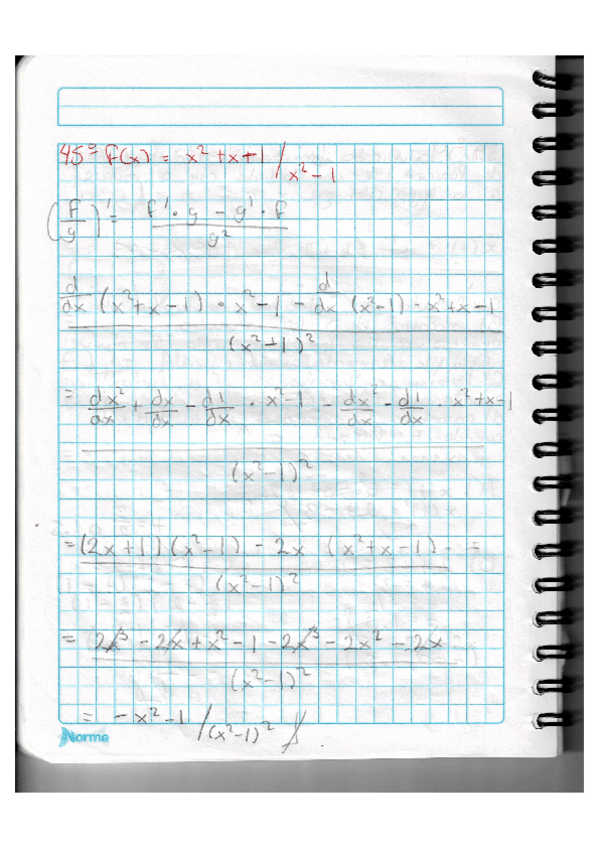 45º F(x) = x²+x+1 / x²-1
(F/g)' = F'·g - g'·F / g²
d/dx (x²+x-1) · x²-1 - d/dx (x²-1) - x²+x-1 / (x²-1)²
= dx²/dx + dx/dx - d1/dx · x²-1 - dx²/dx - d1/dx · x²+x-1 / (x²-1)²
= (2x+1)(x²-1) - 2x (x²+x-1) = / (x²-1)²
= 2x³ - 2x + x² - 1 - 2x³ - 2x² - 2x / (x²-1)²
= -x²-1 / (x²-1)²
Norma